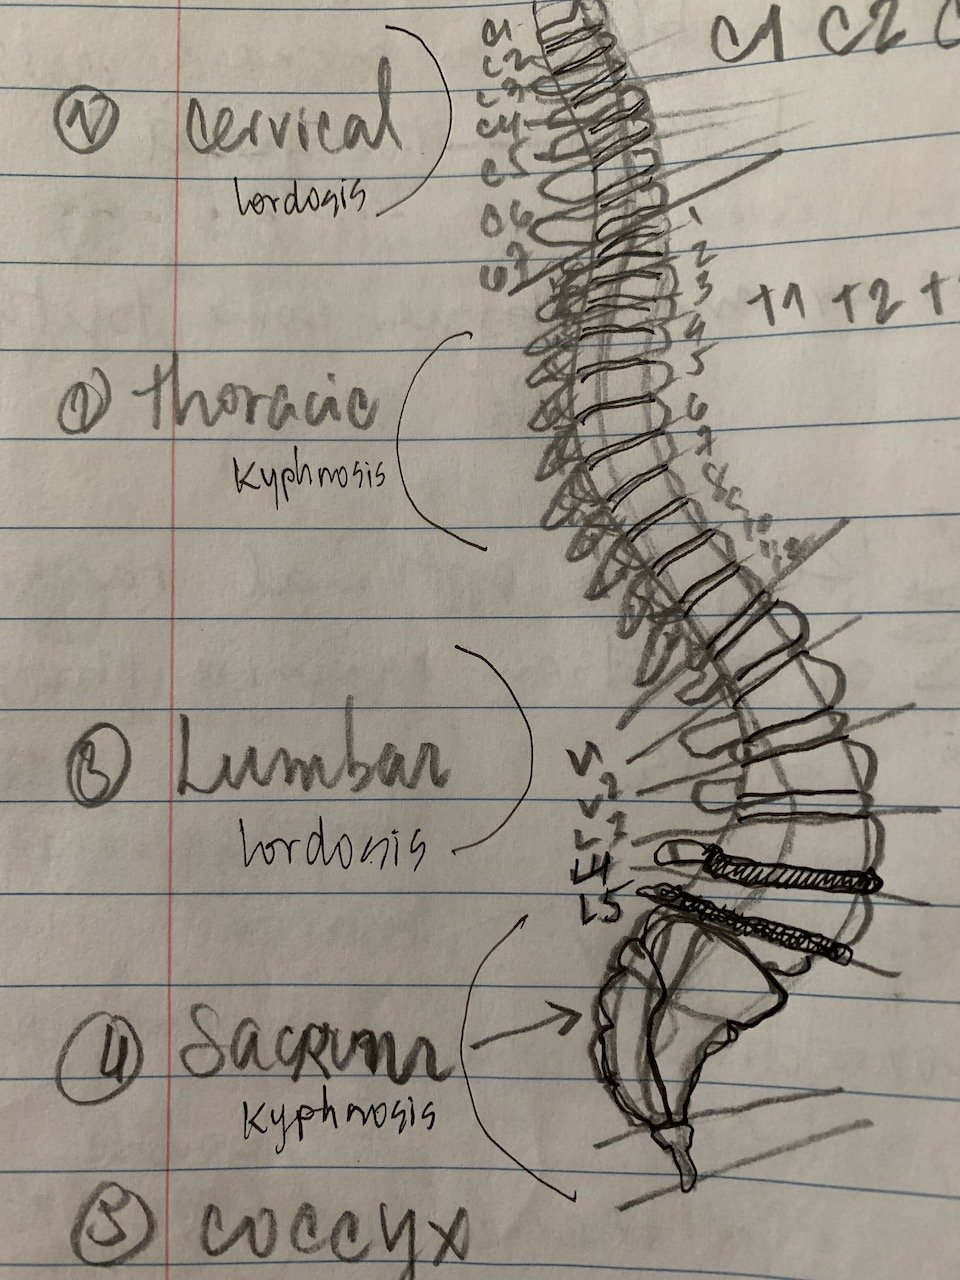 C1 C2 C
C1
C2
C3
C4
C5
C6
C7
① Cervical
lordosis
1
2
3
4
5
6
7
8
9
10
+1 +2 +
② thoracic
Kyphnosis
③ Lumbar
lordosis
L4
L5
④ Sacrum
Kyphnosis
⑤ coccyx